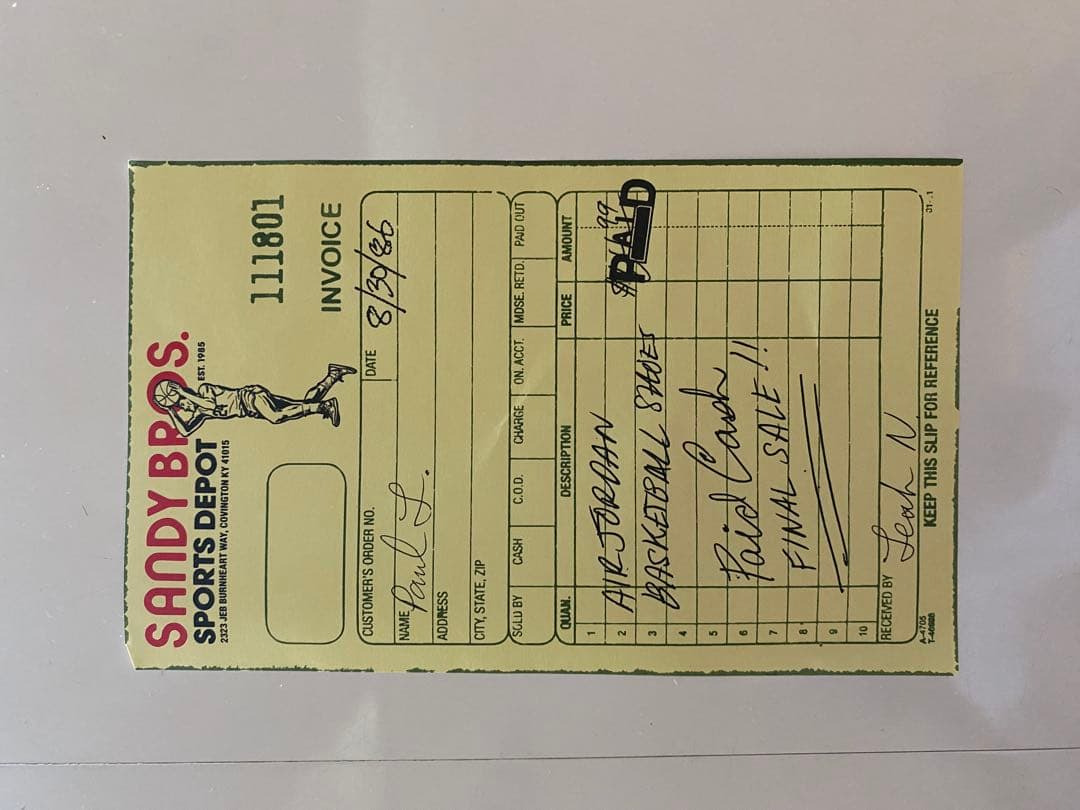 SANDY BROS.
SPORTS DEPOT
EST. 1985
2323 JEB BURNHEART WAY, COVINGTON KY 41015
24
111801
INVOICE
CUSTOMER'S ORDER NO. DATE 8/30/86
NAME Paul L.
ADDRESS
CITY, STATE, ZIP
SOLD BY CASH C.O.D. CHARGE ON. ACCT. MDSE. RETD. PAID OUT
QUAN. DESCRIPTION PRICE AMOUNT
1
2 AIR JORDAN
3 BASKETBALL SHOES
PAID
4
5 Paid Cash
6
7 FINAL SALE!!
8
9
10
RECEIVED BY Leah N
A-4705
KEEP THIS SLIP FOR REFERENCE